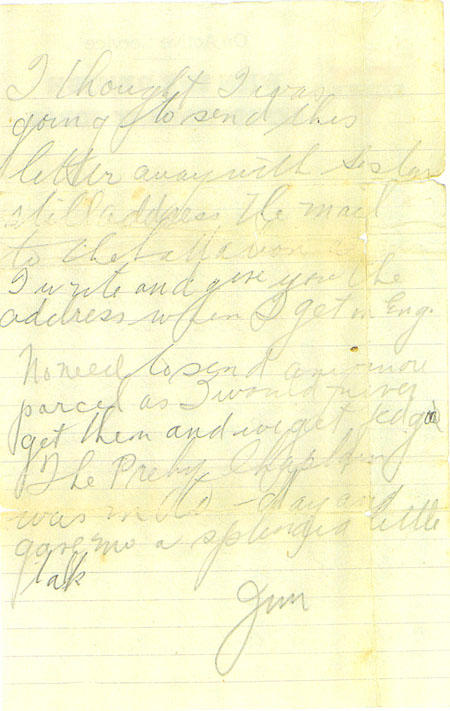 On Active Service
I thought I was
going to send this
letter away with
still address the mail
to the
I write and give you the
address when I get in Eng.
No need to send anymore
parcels as I would never
get them and we get
The Presby Chaplain
was in to-day and
gave me a splendid little
talk
Jim